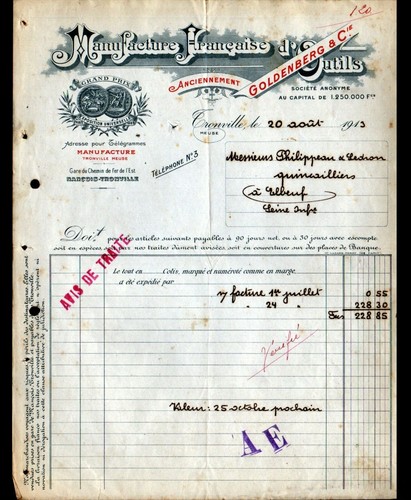 120
Manufacture Française d'Outils
Anciennement
GOLDENBERG & Cie
SOCIÉTÉ ANONYME
AU CAPITAL DE 1.250.000 Frs
GRAND PRIX
EXPOSITION UNIVERSELLE
Adresse pour Télégrammes
MANUFACTURE
TRONVILLE MEUSE
Gare du Chemin de fer de l'Est
NANÇOIS-TRONVILLE
TÉLÉPHONE N°3
Tronville, le 20 août 1913
MEUSE
Messieurs Philippeau & Ledron
quincailliers
à Elbeuf
Seine Infre
Doit, pour les articles suivants payables à 90 jours net, ou à 30 jours avec escompte
soit en espèces, soit par nos traites dûment avisées, soit en couverture sur des places de Banque.
Le tout en Colis, marqué et numéroté comme en marge,
a été expédié par
AVIS DE TRAITE
n/ facture 1er juillet 0 55
" 24 " 228 30
Frs 228 85
Vérifié
Valeur: 25 octobre prochain
AE